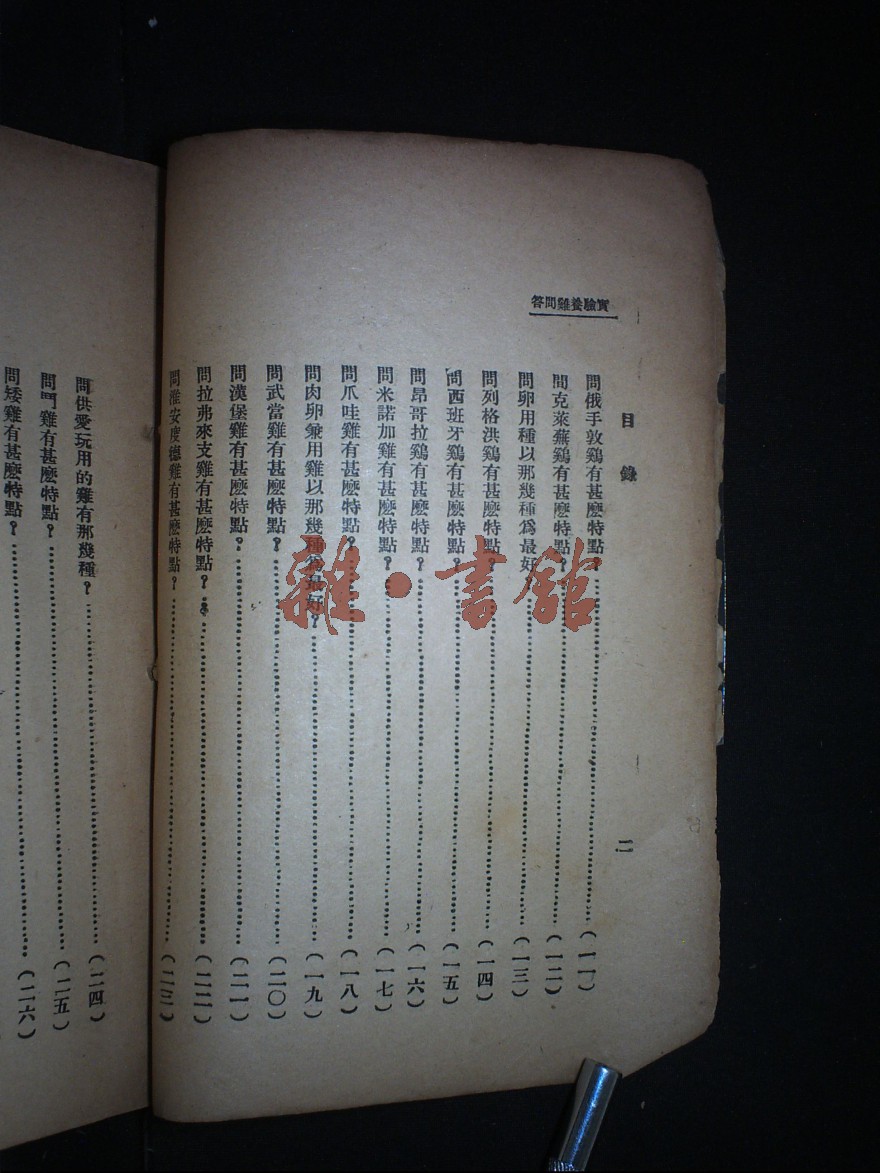 實驗養雞問答
目錄
二
問俄手敦鷄有甚麽特點?(一一)
問克萊蕪鷄有甚麽特點?(一二)
問卵用種以那幾種爲最好?(一三)
問列格洪鷄有甚麽特點?(一四)
問西班牙鷄有甚麽特點?(一五)
問昂哥拉鷄有甚麽特點?(一六)
問米諾加雞有甚麽特點?(一七)
問爪哇雞有甚麽特點?(一八)
問肉卵兼用雞以那幾種爲最好?(一九)
問武當雞有甚麽特點?(二〇)
問漢堡雞有甚麽特點?(二一)
問拉弗來支雞有甚麽特點?(二二)
問淮安度雞有甚麽特點?(二三)
問供愛玩用的雞有那幾種?(二四)
問鬥雞有甚麽特點?(二五)
問矮雞有甚麽特點?(二六)
雜·書館